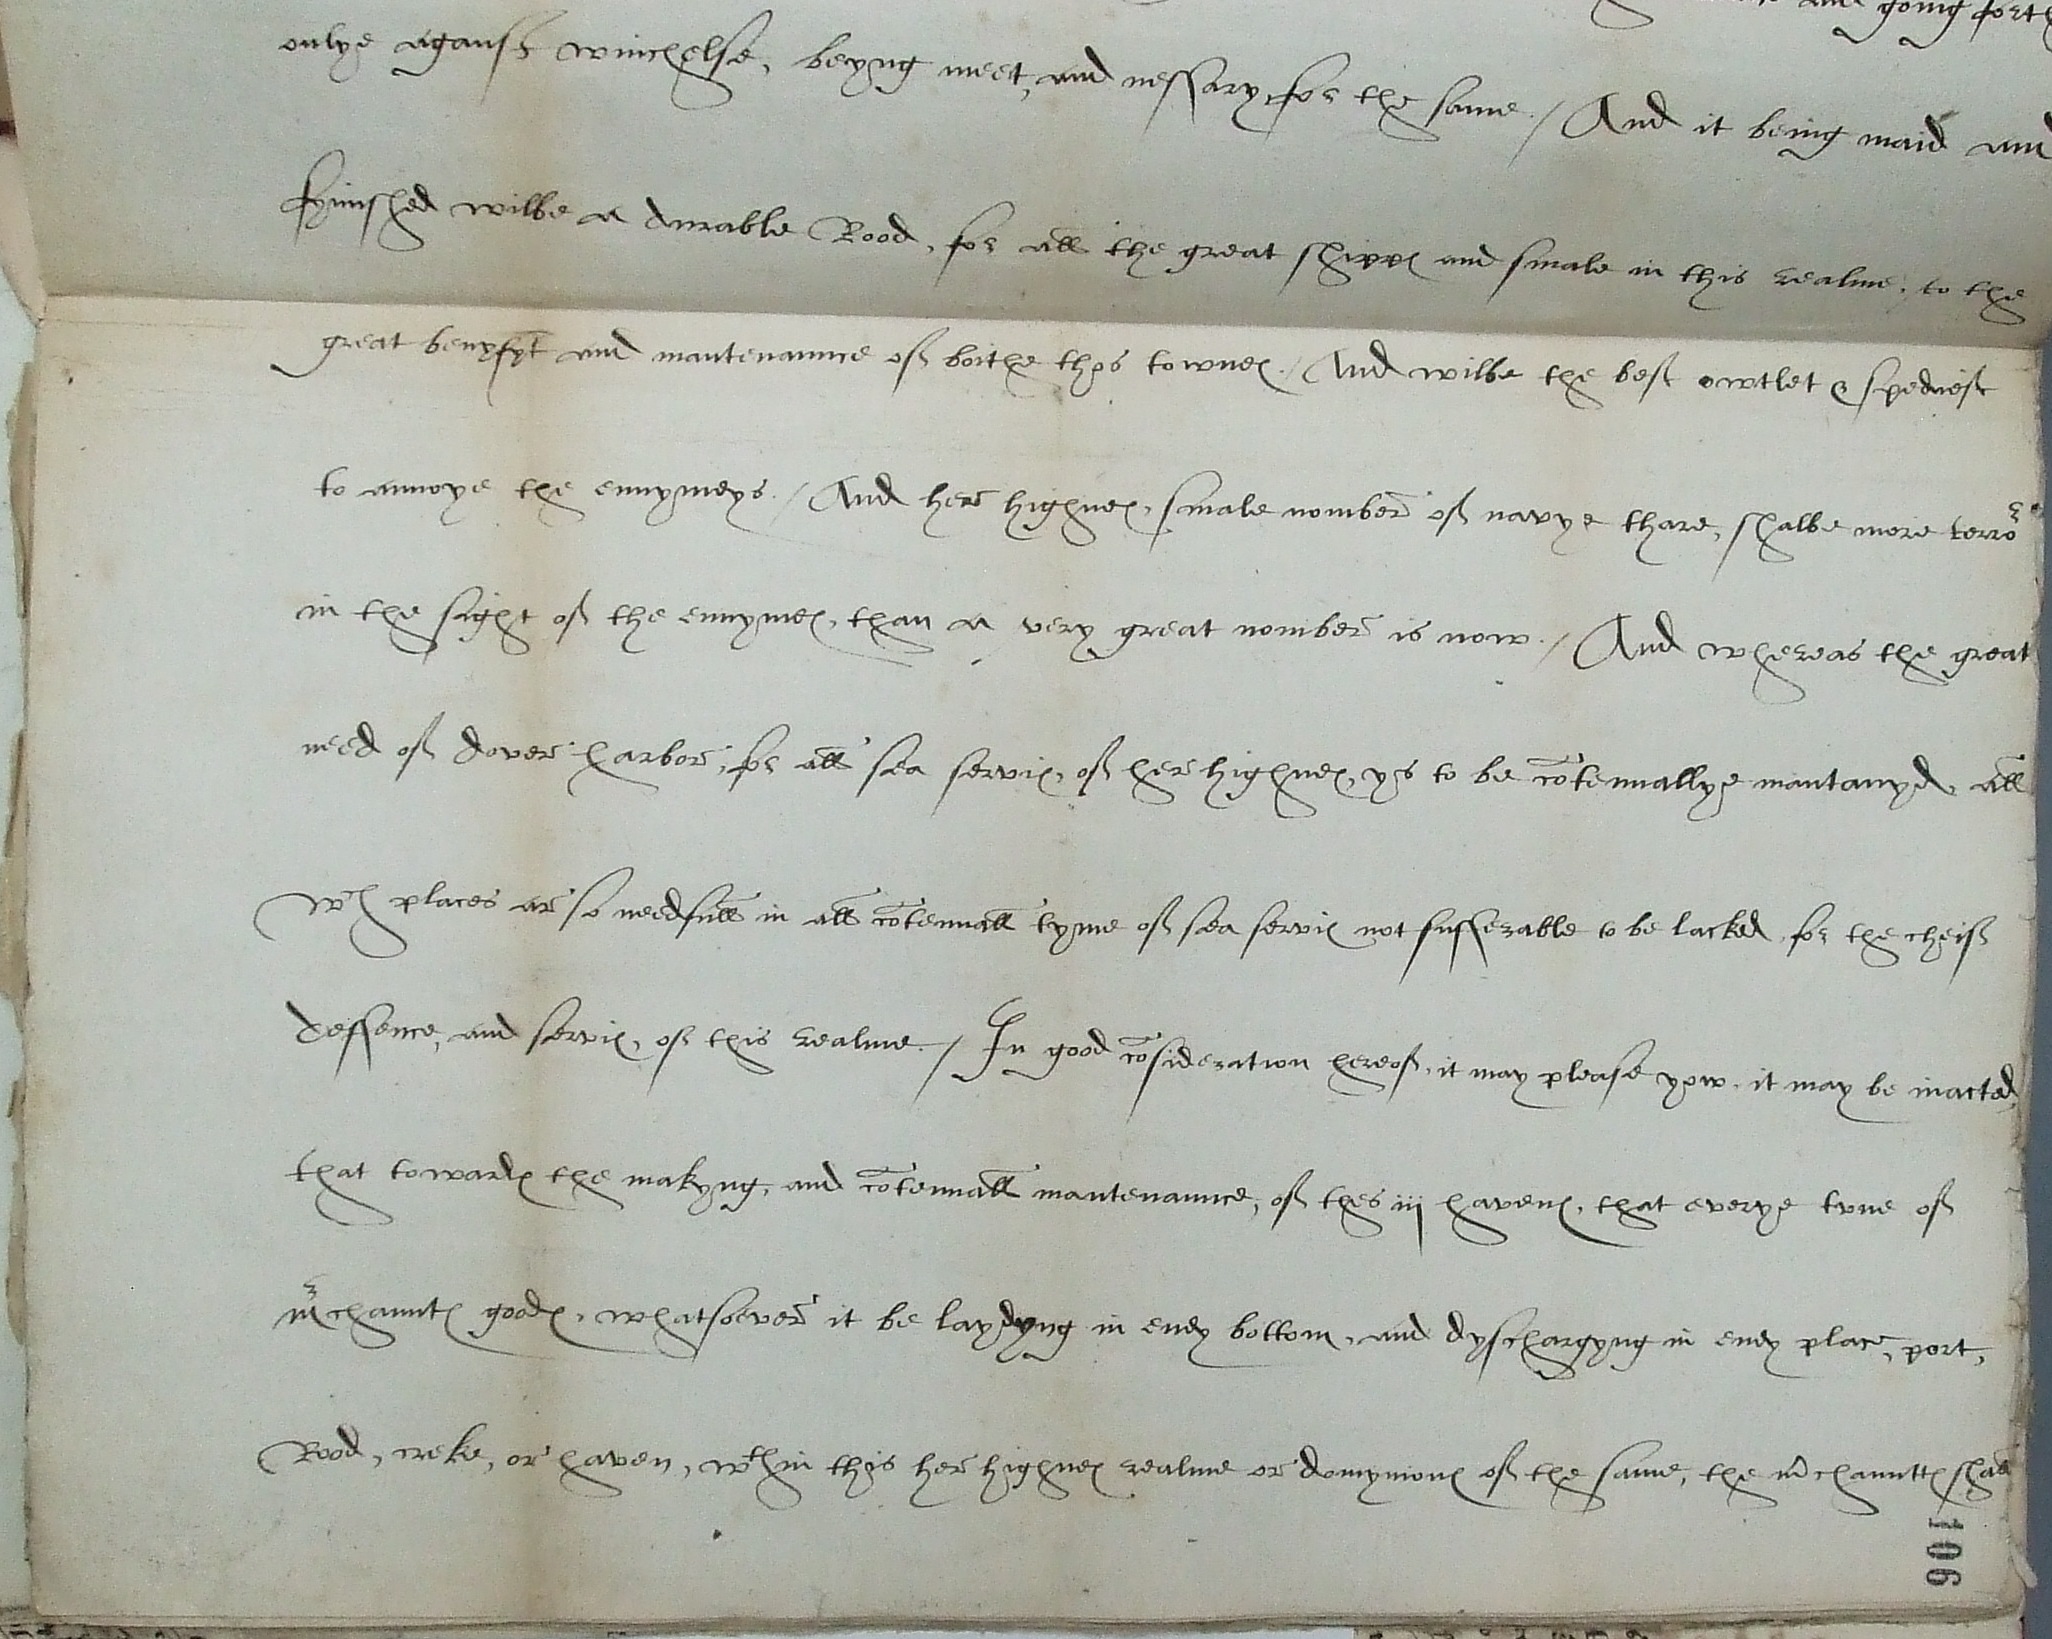 and going forth
onlye aganst winchelse, beyng meet, and nessary for the same. / And it being maid and
fynished wilbe a durable Rood, for all the great shippes and smale in this realme, to the
great benyfyt and mantenaunce off boithe thes townes. / And wilbe the best owtlet & spediest
to annoye the ennymeys. / And her highnes, smale nomber off navye thare, shalbe more terror
in the sight off the ennymes, than a very great nomber is now. / And whereas the great
need off dover harbor, for all sea servis, off her highnes, ys to be cōtenuallye mantanyd, all
wch places ar so needfull in all cōtenuall tyme off sea servis not sufferable to be lacked, for the cheiff
deffence, and servis, off this realme. / In good cōsideration hereoff, it may please yow, it may be inacted,
that towardes the makyng, and cōtenuall mantenaunce, off thes iij havens, that everye tvne off
mrchauntes goodes, whatsoever it be laydyng in eny bottom, and dyschargyng in eny place, port,
Rood, creke, or haven, wthin this her highnes realme or domynions off the same, the mrchauntes shall
106